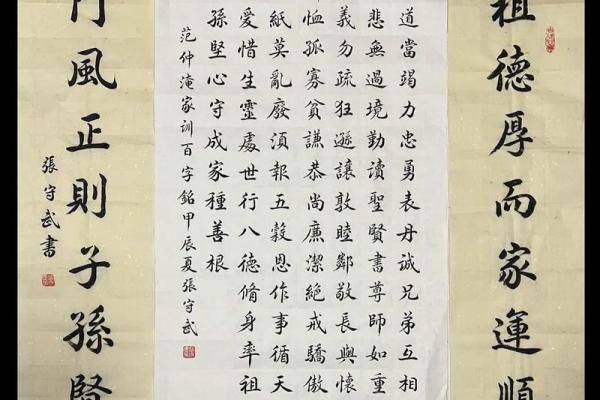 祖德厚而家運順
道當竭力忠勇表丹誠兄弟互相
悲無過境勤讀聖賢書尊師如重
義勿疏狂遜讓敦睦鄰敬長與懷
恤孤寡貧謙恭尚廉潔絕戒驕傲
紙莫亂廢須報五穀恩作事循天
愛惜生靈處世行八德脩身率祖
孫堅心守成家種善根
范仲淹家訓百字銘甲辰夏張守武
門風正則子孫賢
張守武書